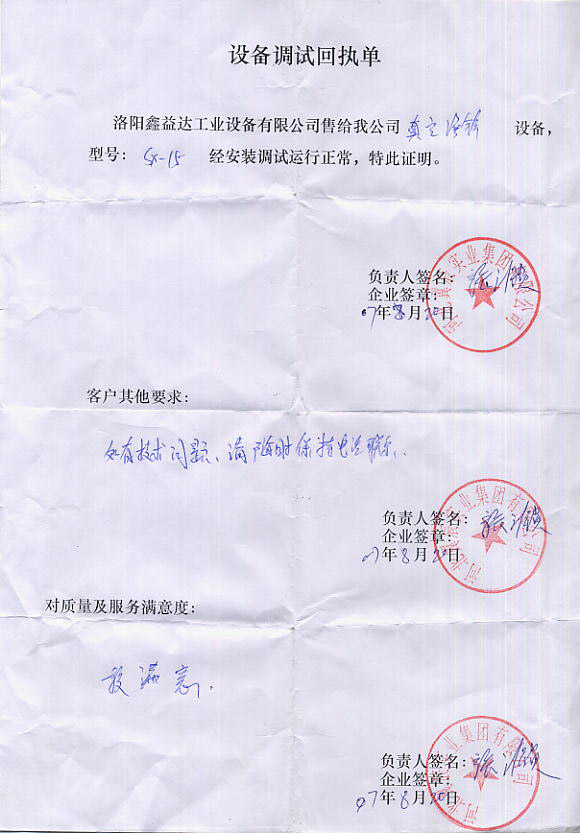 设备调试回执单
洛阳鑫益达工业设备有限公司售给我公司 真空 设备，
型号： SX-15 经安装调试运行正常，特此证明。
负责人签名：
企业签章：
07年8月20日
实业集团有限公司
客户其他要求：
如有技术问题、请随时保持电话联系.
负责人签名：张
企业签章：
07年8月20日
河北 实业集团有限公司
对质量及服务满意度：
较满意.
负责人签名：张
企业签章：
07年8月20日
业集团有限公司